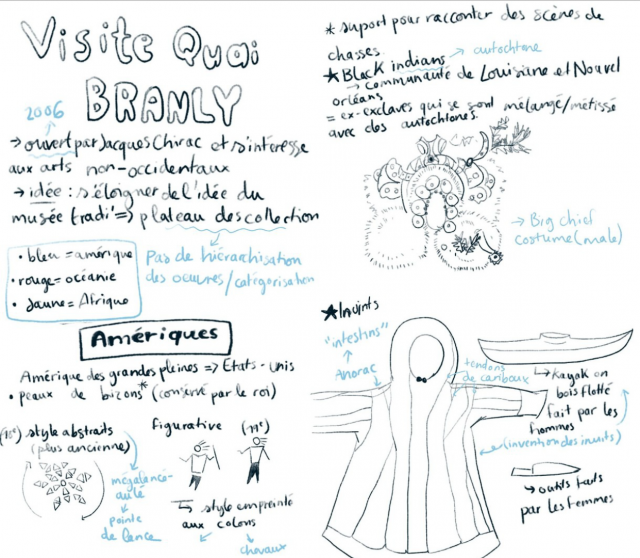 Visite Quai
BRANLY
2006
→ ouvert par Jacques Chirac et s'interesse
aux arts non-occidentaux
→ idée : s'éloigner de l'idée du
musée tradi' => plateau des collection
Pas de hiérarchisation
des oeuvres/catégorisation
• bleu = amérique
• rouge = océanie
• Jaune = Afrique
Amériques
Amérique des grandes pleines => Etats-unis
• peaux de bizons* (conservé par le roi)
style abstraits
(plus ancienne)
pointe
de lance
figurative (19e)
↳ style empreinté
aux colons
chevaux
* suport pour racconter des scènes de
chasses
★ Black indians → autochtone
→ communauté de Louisiane et Nouvel
orléans
= ex-exclaves qui se sont mélangé/métissé
avec des autochtones.
→ Big chief
costume (male)
★ Inuints
"intestins"
Anorac
tendons
de caribous
↳ kayak en
bois flotté
fait par les
hommes
(invention des inuits)
↳ outils faits
par les femmes